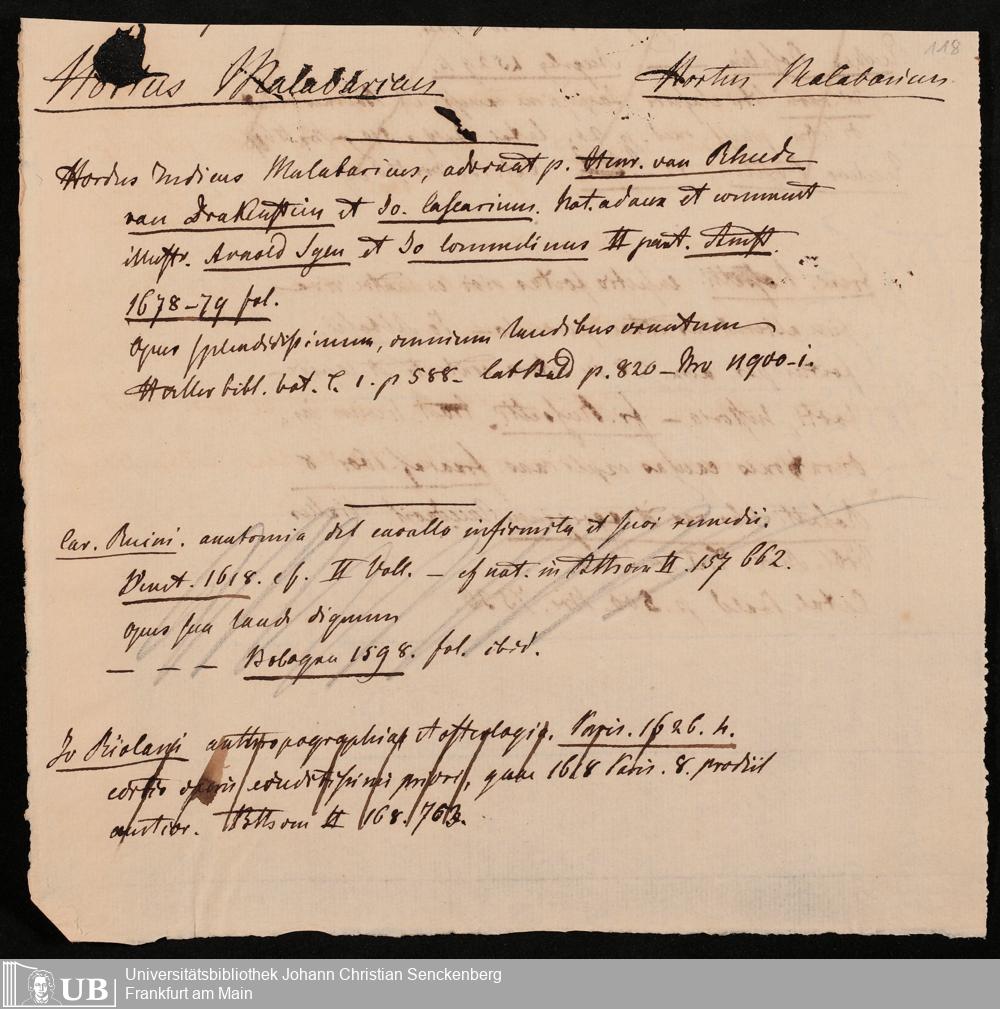 118
Hortus Malabaricus Hortus Malabaricus
Hordus Indicus Malabaricus, adornat p. Henr. van Rhede
van Drakenstein et Jo. Casearinus. Not. adaux et comment
illustr. Arnold Syen et Jo Commelinus II part. Amst.
1678-79 fol.
Opus splendidissimum, omnium laudibus ornatum
Haller bibl. bot. T. 1. p 588- Cat Bald p. 820- No 11900-1.
Car. Ruini. anatomia del cavallo infirmita et suoi remedii.
Venet. 1618. cf. II Voll. - cf nat. in II. 157 662.
opus sua laude dignum
- - - Bologna 1598. fol. ibid.
Jo Riolani anthropographia et osteologia. Paris. 1626. 4.
editio operis eruditissimi priori, quae 1618 Paris. 8. prodiit
auctior. II 168. 763.
Universitätsbibliothek Johann Christian Senckenberg
UB Frankfurt am Main